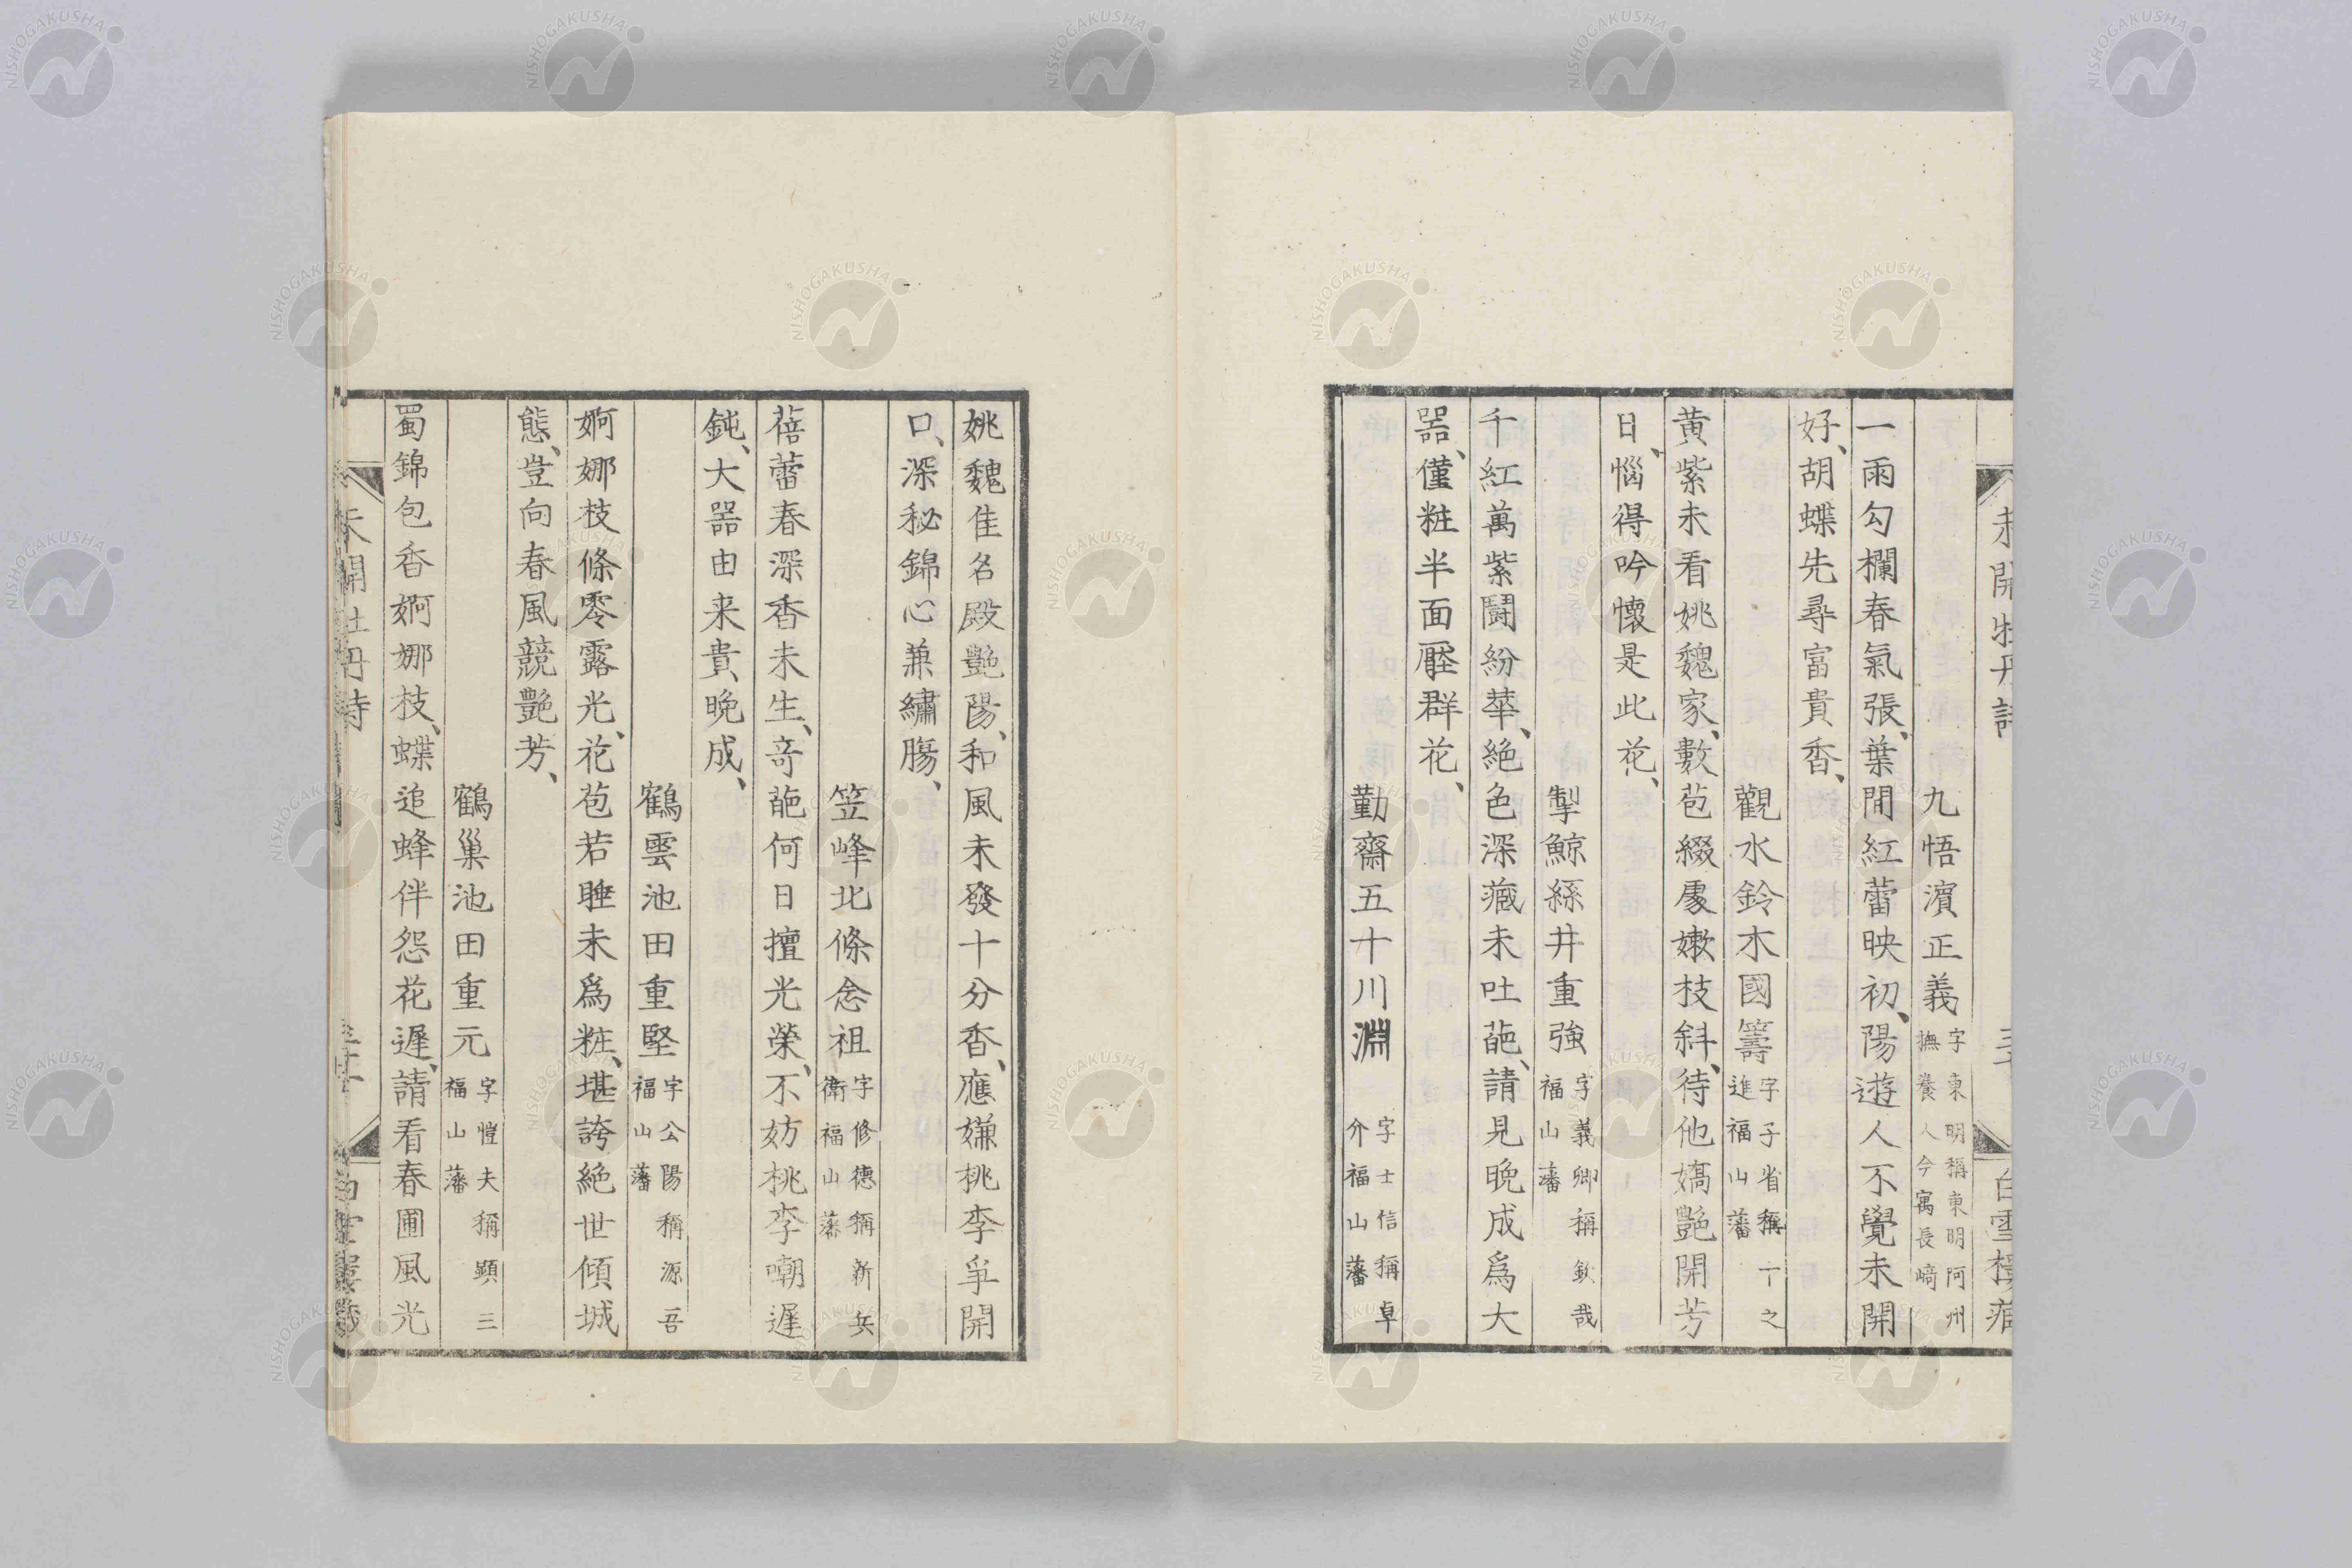 未開牡丹詩
九悟濱正義 字東明稱東明阿州撫養人今寓長﨑
一雨勾欄春氣張、葉間紅蕾映初、陽遊人不覺未開
好、胡蝶先尋富貴香、
觀水鈴木國籌 字子省稱一之進福山藩
黄紫未看姚魏家、數苞綴處嫩枝斜、待他嬌艷開芳
日、惱得吟懷是此花、
掣鯨縣井重強 字義卿稱欽哉福山藩
千紅萬紫鬪紛華、絶色深藏未吐葩、請見晩成爲大
器、僅粧半面壓群花、
勤齋五十川淵 字士信稱卓介福山藩
姚魏隹名殿艶陽、和風未發十分香、應嫌桃李爭開
口、深秘錦心兼繡膓、
笠峰北條念祖 字修德稱新兵衛福山藩
蓓蕾春深香未生、竒葩何日擅光榮、不妨桃李嘲遲
鈍、大器由来貴晩成、
鶴雲池田重堅 字公陽稱源吾福山藩
婀娜枝條零露光、花苞若睡未爲粧、堪誇絶世傾城
態、豈向春風競艶芳、
鶴巢池田重元 字愷夫稱顕三福山藩
蜀錦包香婀娜枝、蝶追蜂伴怨花遲、請看春圃風光
未開牡丹詩
NISHOGAKUSHA